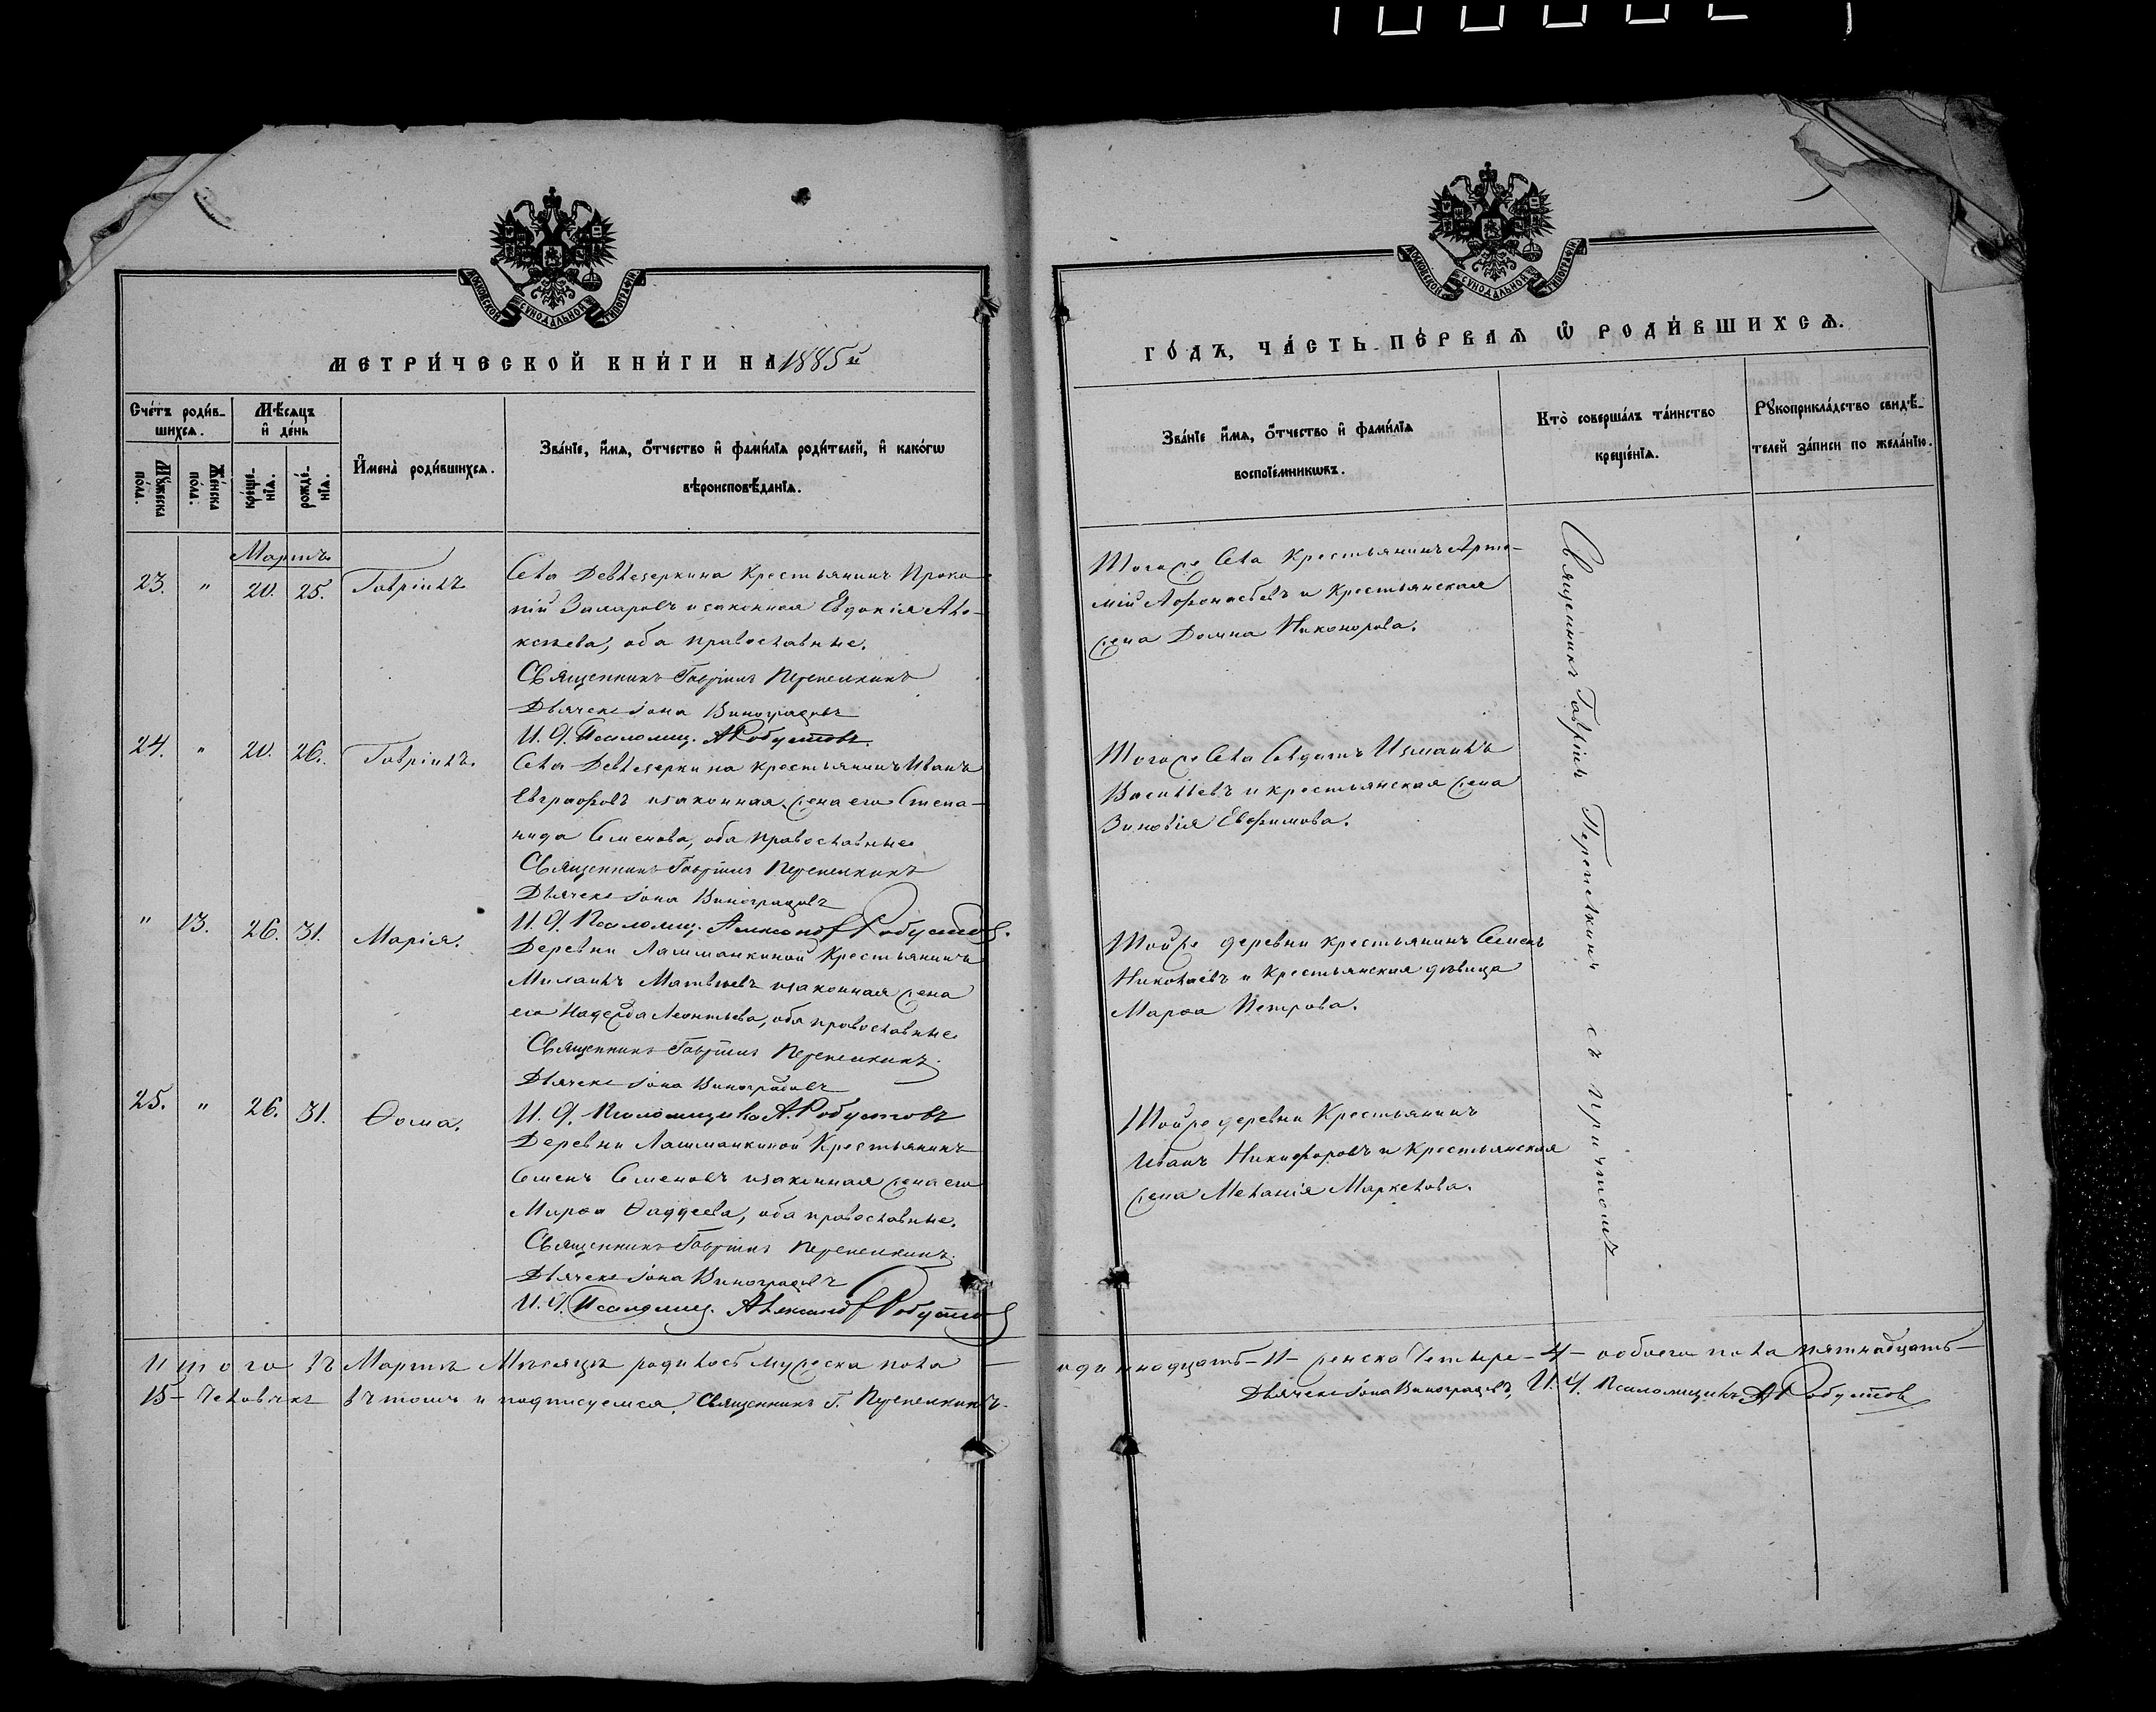 МОСКОВСКОЙ СУНОДАЛЬНОЙ ТИПОГРАФІИ
МЕТРИ́ЧЕСКОЙ КНИ́ГИ НА 1885й
Сче́тъ роди́в-
шихсѧ.
Мѣ́сѧцъ
и҆ де́нь
Мꙋ́жеска
по́ла.
Же́нска
по́ла.
креще́-
нїѧ.
рожде́-
нїѧ.
И҆мена̀ роди́вшихсѧ.
Зва́нїе, и҆́мѧ, ѻ҆́тчество и҆ фами́лїѧ роди́телей, и҆ како́гѡ
вѣроисповѣ́данїѧ.
Мартъ
23. " 20. 25. Гавріилъ
Села Девлезеркина Крестьянинъ Проко-
пій Захаровъ и законная Евдокія Але-
ксѣева, оба православные.
Священникъ Гавріилъ Перепелкинъ
Дьячекъ Іона Виноградовъ
И. Д. Псаломщ. А Робустовъ.
24. " 20. 26. Гавріилъ.
Села Девлезеркина крестьянинъ Иванъ
Евграфовъ и законная жена его Степа-
нида Семенова, оба православные
Священникъ Гавріилъ Перепелкинъ
Дьячекъ Іона Виноградовъ
И. Д. Псаломщ. Александр Робустов.
" 13. 26. 31. Марія.
Деревни Лашманкиной Крестьянинъ
Михаилъ Матвѣевъ и законная жена
его Надежда Леонтьева, оба православные
Священникъ Гавріилъ Перепелкинъ.
Дьячекъ Іона Виноградовъ
25. " 26. 31. Ѳома.
И. Д. Псаломщика А. Робустовъ
Деревни Лашманкиной Крестьянинъ
Семенъ Семеновъ и законная жена его
Марѳа Ѳаддеева, оба православные.
Священникъ Гавріилъ Перепелкинъ.
Дьячекъ Іона Виноградовъ
И. Д. Псаломщ. Александр Робустов
Итого въ Мартѣ Мѣсяцѣ родилось мужеска пола —
15 – Человѣкъ въ томъ и подписуемся, Священникъ Г. Перепелкинъ.
МОСКОВСКОЙ СУНОДАЛЬНОЙ ТИПОГРАФІИ
ГО́ДЪ, ЧА́СТЬ ПЕ́РВАѦ Ѡ҆ РОДИ́ВШИХСѦ.
Зва́нїе и҆́мѧ, ѻ҆́тчество и҆ фами́лїѧ
воспрїе́мникѡвъ.
Кто̀ соверша́лъ та́инство
креще́нїѧ.
Рꙋкоприкла́дство свидѣ́-
телей за́писи по жела́нїю.
Тогоже Села Крестьянинъ Арте-
мій Афонасьевъ и Крестьянская
жена Домна Никонорова.
Тогоже Села Солдатъ Измаилъ
Васильевъ и крестьянская жена
Зиновія Евфимова.
Тойже деревни крестьянинъ Семенъ
Николаевъ и Крестьянская дѣвица
Марѳа Петрова.
Тойже деревни Крестьянинъ
Иванъ Никифоровъ и Крестьянская
жена Меланія Маркелова.
Священникъ Гавріилъ Перепелкинъ съ причтомъ
одиннадцать – 11 – женска Четыре – 4 – обоего пола пятнадцать –
Дьячекъ Іона Виноградовъ, И. Д. Псаломщикъ А Робустов